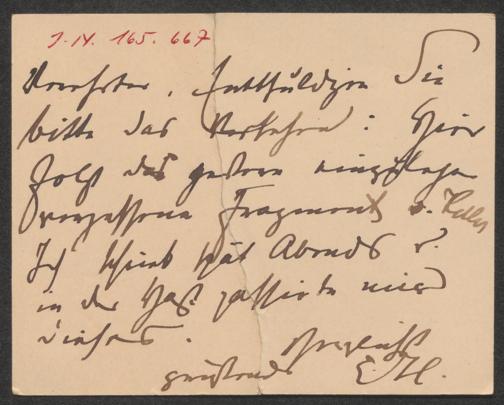 J.N. 165.667
Verehrter, Entschuldigen Sie
bitte das Versehen: Hier
folgt das gestern einzulegen
vergessene Fragment v.
Ich schrieb spät Abends u.
in der Hast passirte mir
dieses.
Herzlichst
grüßend E.H.